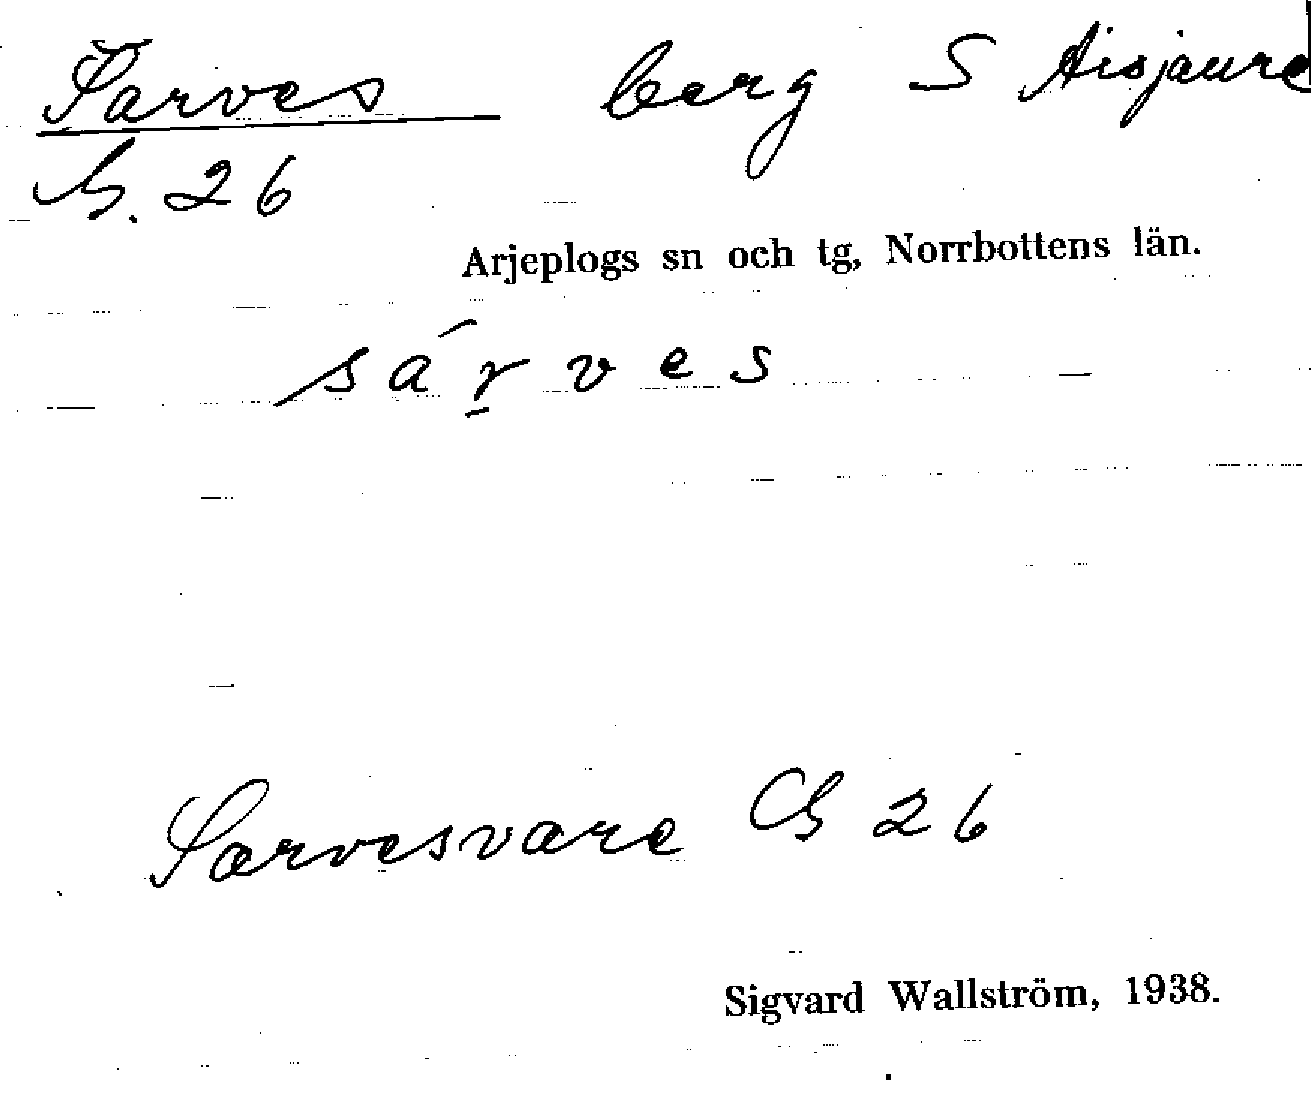 Šarves berg S Aisjaure
G. 26
Arjeplogs sn och tg, Norrbottens län.
s a ́ ṟ v e s
Sarvesvare G 26
Sigvard Wallström, 1938.